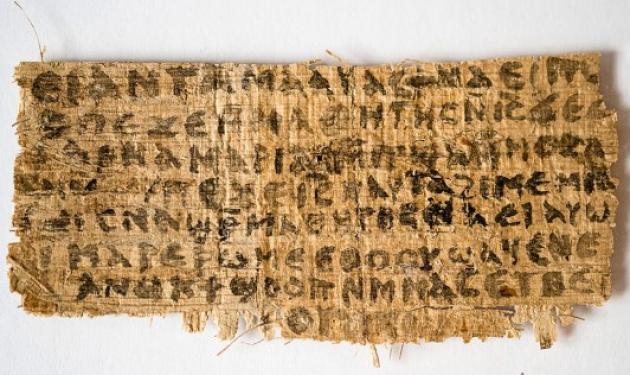 ⲉⲓ ⲁⲛ ⲧⲁⲙⲁⲁⲩ ⲁⲥϯ ⲛⲁⲉⲓ ⲡ
ⲡⲉϫⲉ ⲙⲙⲁⲑⲏⲧⲏⲥ ⲛⲓⲥ ϫⲉ ⲥ
ⲁⲣⲛⲁ ⲙⲁⲣⲓⲁⲙ ⲙⲡϣⲁ ⲙⲙⲟⲥ ⲁ
ⲡⲉϫⲉ ⲓⲥ ⲛⲁⲩ ⲧⲁϩⲓⲙⲉ ⲙⲛ
ⲥⲛⲁϣⲣⲙⲁⲑⲏⲧⲏⲥ ⲛⲁⲉⲓ ⲁⲩⲱ
ⲙⲁⲣⲉⲣⲱⲙⲉ ⲉⲑⲟⲟⲩ ϣⲁϥⲉⲛⲉ
ⲁⲛⲟⲕ ϯϣⲟⲟⲡ ⲛⲙⲙⲁⲥ ⲉⲧⲃⲉ